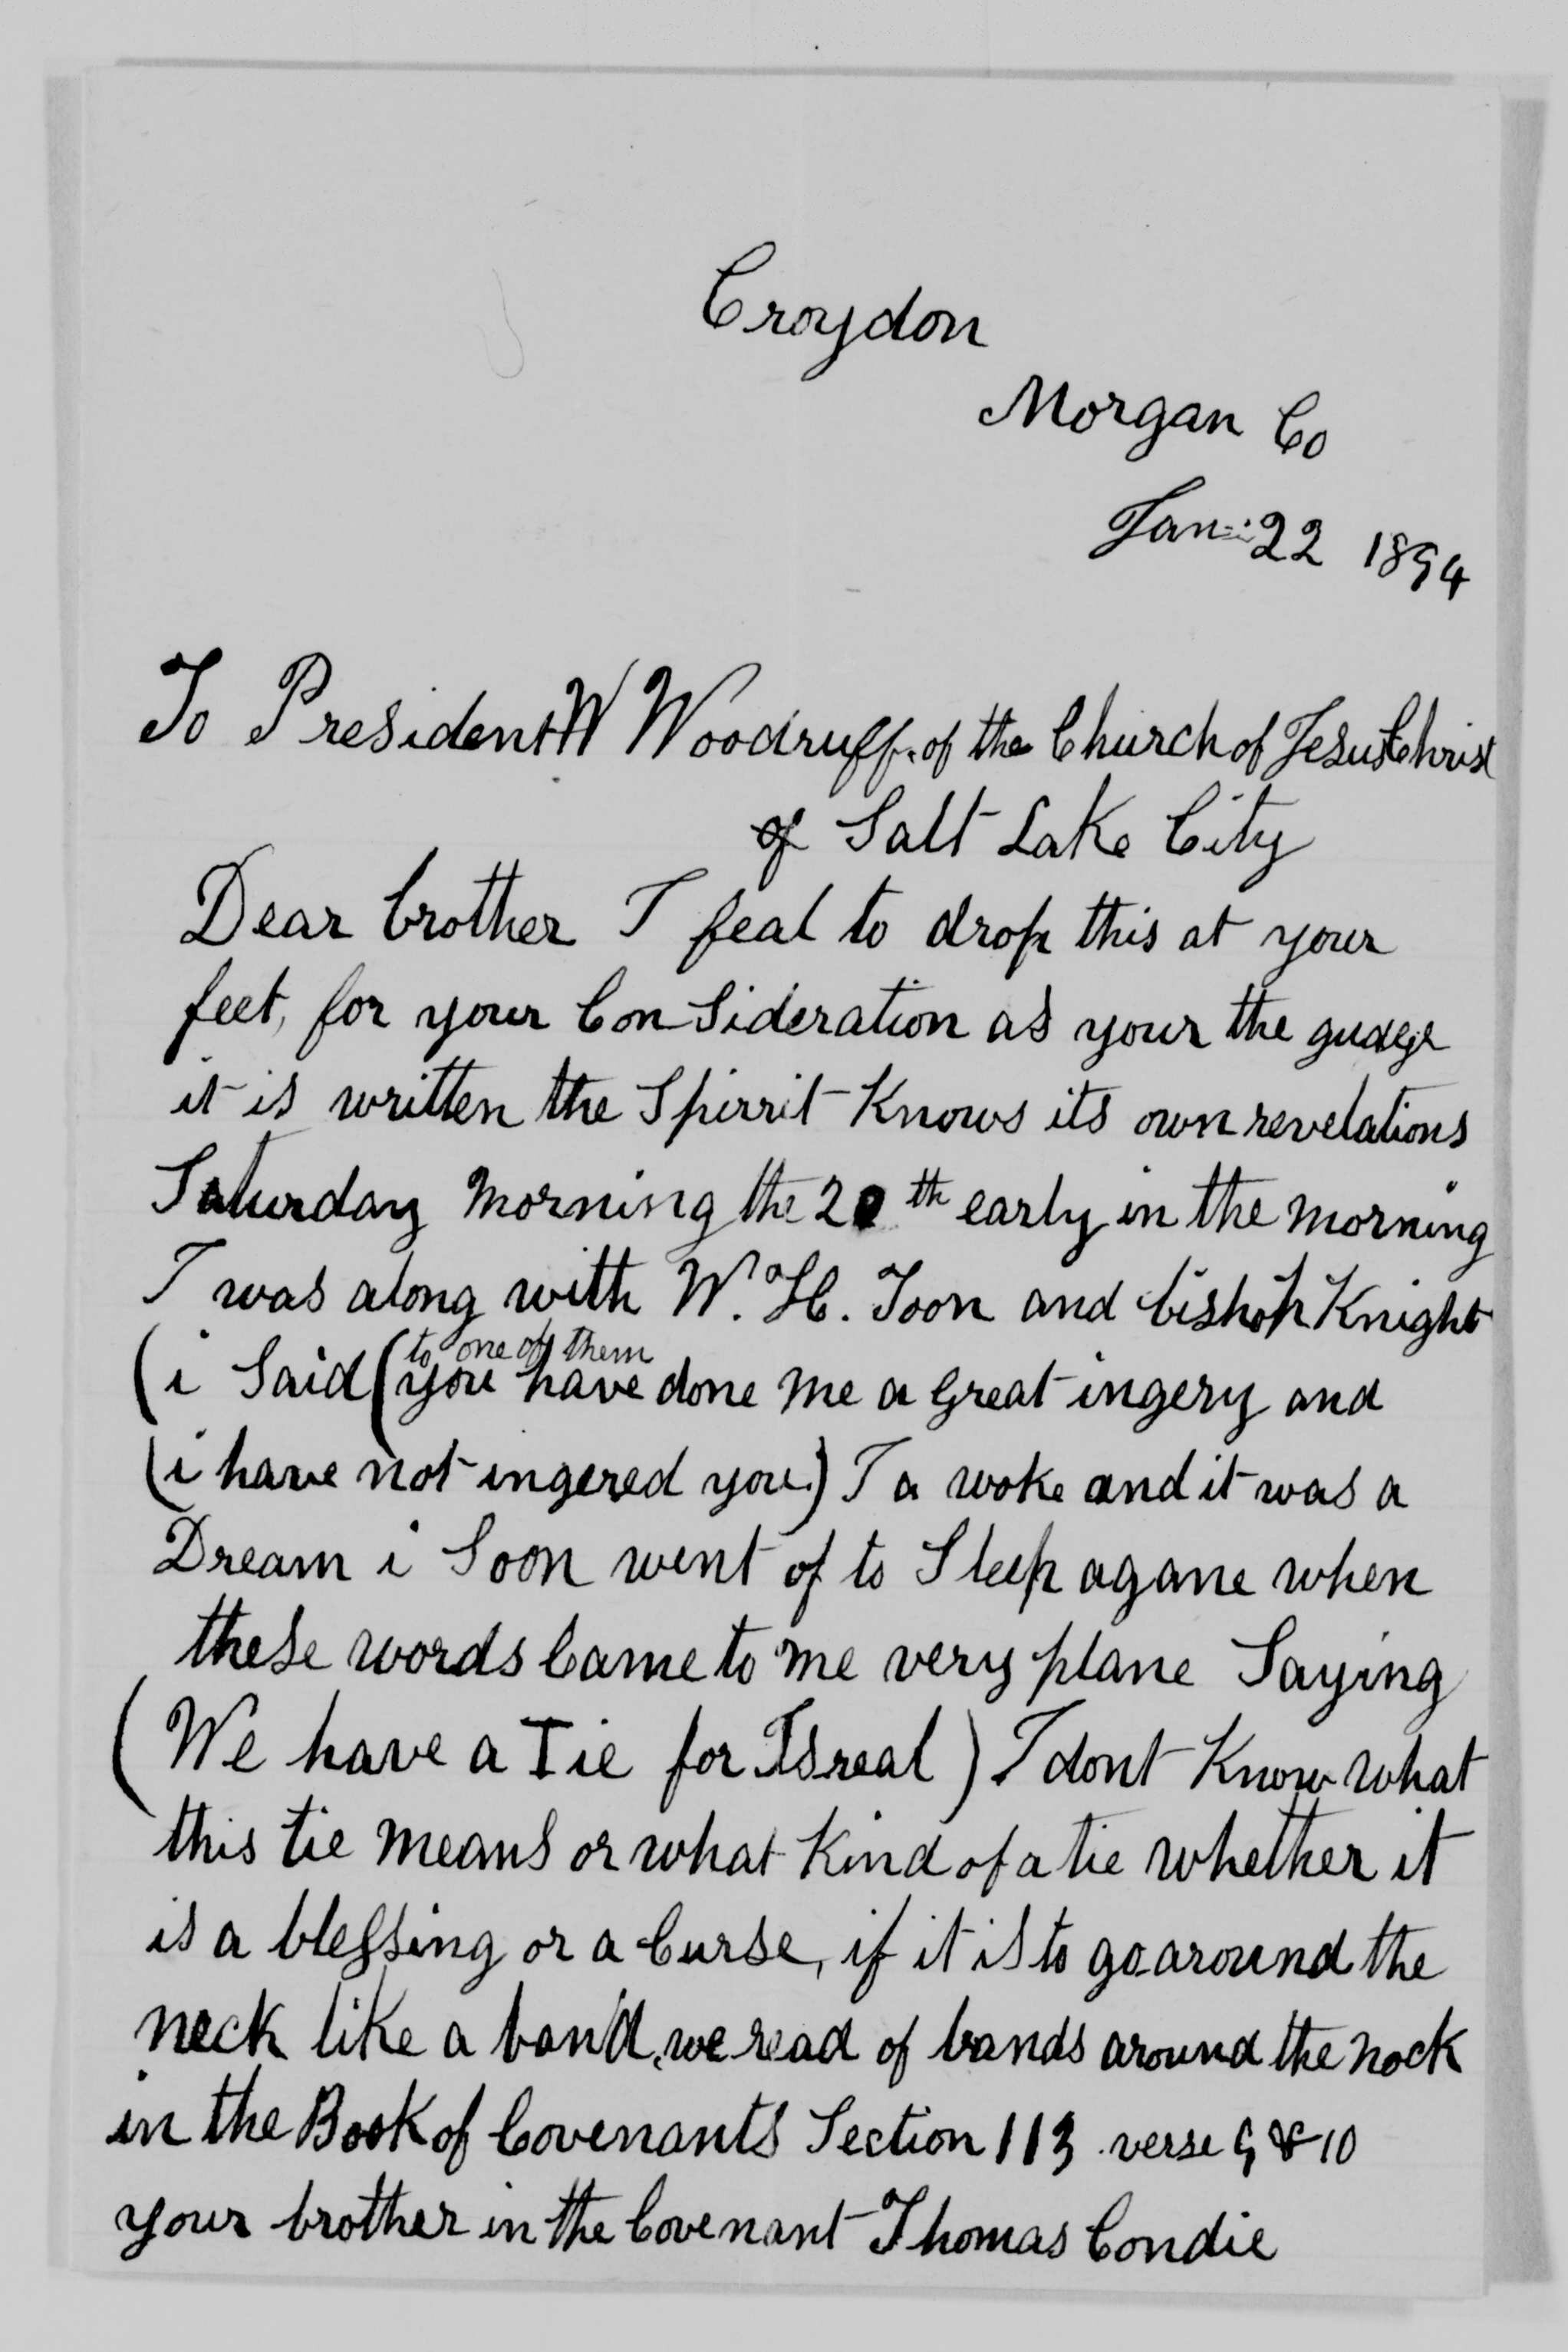 Croydon
Morgan Co
Jan: 22 1894
To President W Woodruff. of the Church of Jesus Christ
of Salt Lake City
Dear brother I feal to drop this at your
feet, for your Consideration as your the gudge
it is written the Spirrit Knows its own revelations
Saturday morning the 20th early in the morning
I was along with W. H. Toon and bishop Knight
to one of them
(i Said (you have done me a great ingery and
(i have not ingered you.) I a woke and it was a
Dream i Soon went of to Sleep agane when
these words Came to me very plane Saying
(We have a Tie for Isreal) I dont Know what
this tie means or what Kind of a tie whether it
is a blessing or a Curse, if it is to go around the
neck like a band, we read of bands around the nock
in the Book of Covenants Section 113 verse 9 & 10
your brother in the Covenant Thomas Condie